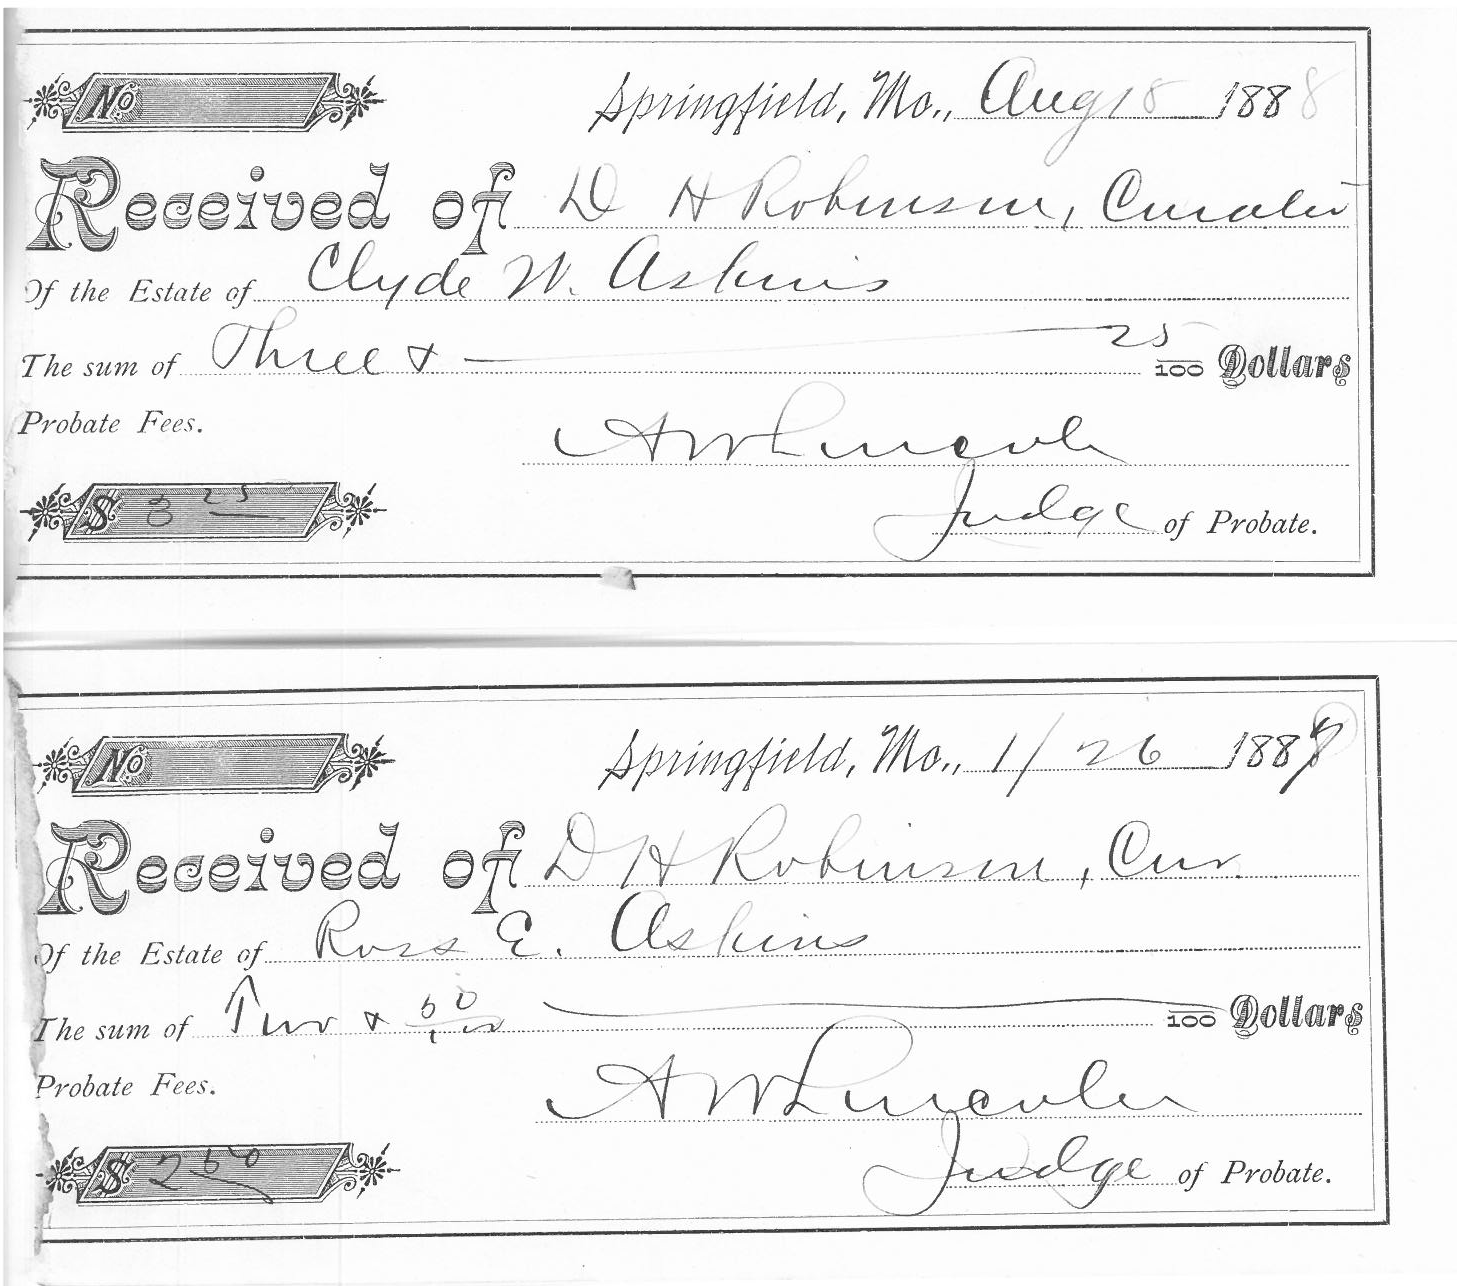 No
Springfield, Mo., Aug 18 1888
Received of D H Robinson, Curator
Of the Estate of Clyde W. Askins
The sum of Three & 25/100 Dollars
Probate Fees.
A W Lincoln
$ 3 25
Judge of Probate.
No
Springfield, Mo., 1/26 1889
Received of D H Robinson, Cur.
Of the Estate of Ross E. Askins
The sum of Two & 50/100 /100 Dollars
Probate Fees.
A W Lincoln
$ 2 50
Judge of Probate.